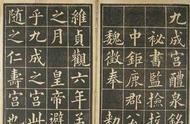 九成宮醴泉銘
祕書監檢校
中鉅鹿郡公
魏徵奉勅
維貞觀六年孟
之月皇帝避
乎九成之宮此
之仁壽宮也